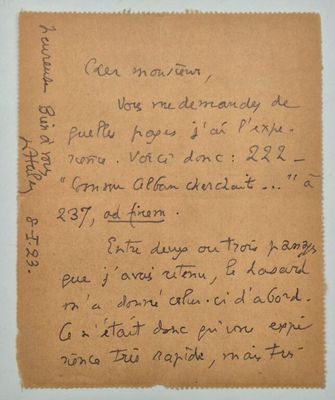 Cher monsieur,
Vous me demandez de
quelles pages j'ai l'expé-
rience. Voici donc : 222 –
"Comme Alban cherchait..." à
237, ad finem.
Entre deux ou trois passages
que j'avais retenu, le hasard
m'a donné celui-ci d'abord.
Ce n'était donc qu'une expé
rience très rapide, mais très
heureuse Bien à vous
8-I-23.